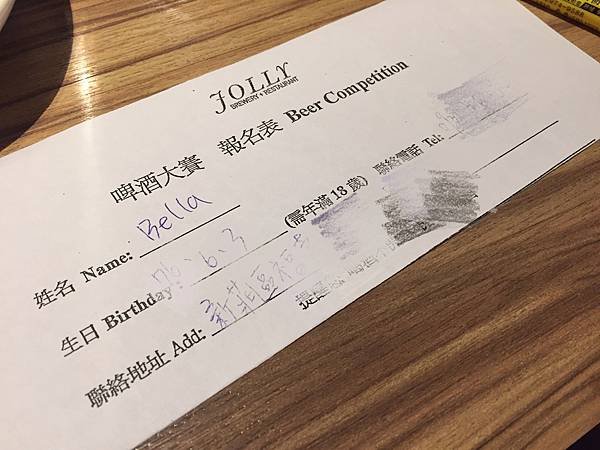 JOLLY
BREWERY + RESTAURANT
啤酒大賽 報名表 Beer Competition
姓名 Name: Bella 聯絡電話 Tel:
生日 Birthday: 76.6.3 (需年滿 18 歲)
聯絡地址 Add: 新莊區